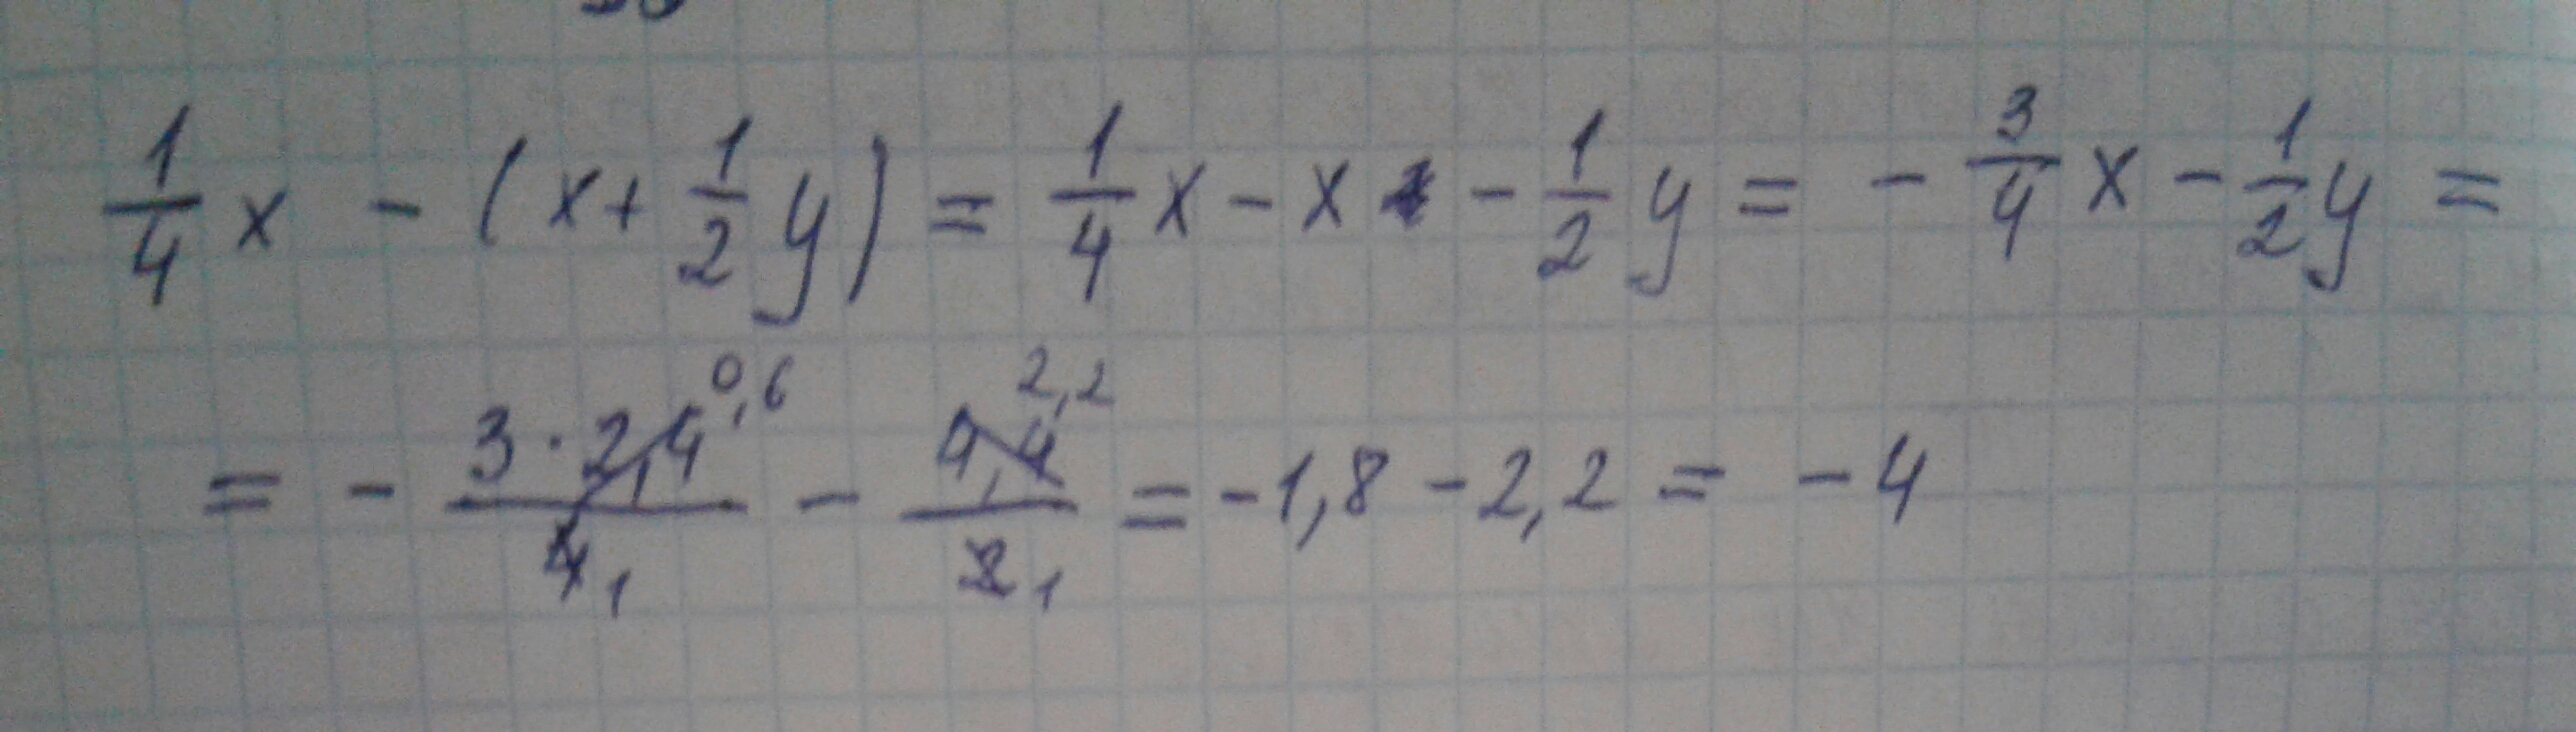 1/4 x - (x + 1/2 y) = 1/4 x - x - 1/2 y = - 3/4 x - 1/2 y =
= - 3 · 2,4 0,6 / 4 1 - 4,4 2,2 / 2 1 = -1,8 - 2,2 = -4